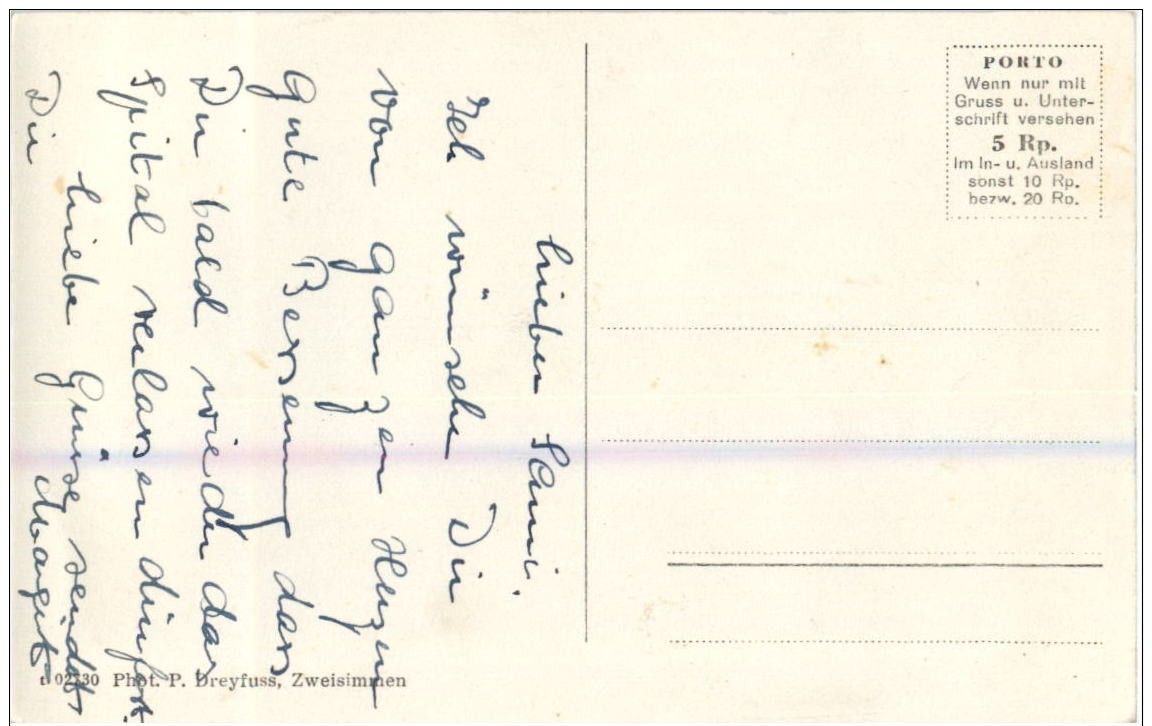 Lieber Sämi.
Ich wünsche Dir
von ganzen Herzen
gute Besserung dass
Du bald wieder das
Spital verlassen dürfst
Liebe Grüsse sendet
Dir Margrit
PORTO
Wenn nur mit
Gruss u. Unter-
schrift versehen
5 Rp.
Im In- u. Ausland
sonst 10 Rp.
bezw. 20 Rp.
Phot. P. Dreyfuss, Zweisimmen